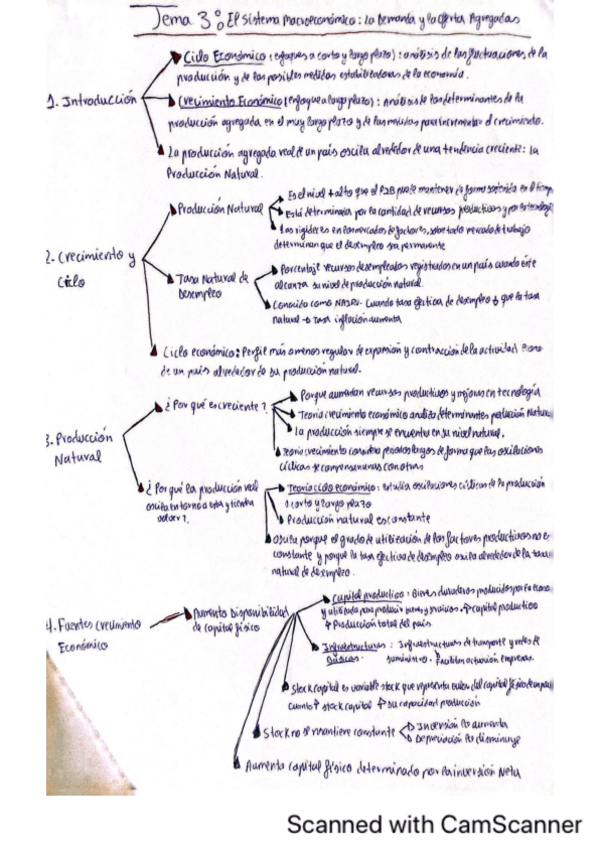 Tema 3: El Sistema Macroeconómico: La Demanda y la Oferta Agregadas
1. Introducción
Ciclo Económico (enfoques a corto y largo plazo): análisis de las fluctuaciones de la
producción y de las posibles medidas estabilizadoras de la economía.
Crecimiento Económico (enfoque a largo plazo): Análisis de los determinantes de la
producción agregada en el muy largo plazo y de las medidas para incrementar el crecimiento.
La producción agregada real de un país oscila alrededor de una tendencia creciente: La
Producción Natural.
2. Crecimiento y
Ciclo
Producción Natural
Es el nivel + alto que el PIB puede mantener de forma sostenida en el tiempo
Está determinada por la cantidad de recursos productivos y por la tecnología
Las rigideces en los mercados de factores, sobre todo mercado de trabajo
determinan que el desempleo sea permanente
Tasa Natural de
Desempleo
Porcentaje recursos desempleados registrados en un país cuando éste
alcanza su nivel de producción natural.
Conocido como NAIRU. Cuando tasa efectiva de desempleo ↓ que la tasa
natural → Tasa inflación aumenta
Ciclo económico: Perfil más o menos regular de expansión y contracción de la actividad
de un país alrededor de su producción natural.
3. Producción
Natural
¿Por qué es creciente?
Porque aumentan recursos productivos y mejoras en tecnología
Teoría crecimiento económico analiza determinantes producción Natural
La producción siempre se encuentra en su nivel natural.
Teoría crecimiento considera periodos largos de forma que las oscilaciones
cíclicas se compensan unas con otras
¿Por qué la producción real
oscila en torno a esta y tienda
volver?
Teoría ciclo económico: estudia oscilaciones cíclicas de la producción
a corto y largo plazo
Producción natural es constante
Oscila porque el grado de utilización de los factores productivos no es
constante y porque la tasa efectiva de desempleo oscila alrededor de la tasa
natural de desempleo.
4. Fuentes Crecimiento
Económico
Aumento Disponibilidad
de capital físico
Capital productivo: Bienes duraderos producidos por la
y utilizada para producir bienes y servicios. ↑ Capital productivo
↑ Producción total del país
Infraestructuras: Infraestructuras de transporte y redes de
Básicas suministro. Facilitan actuación empresas.
Stock capital es variable stock que representa valor del capital físico de un país
Cuanto ↑ stock capital ↑ su capacidad producción
Stock no se mantiene constante
Inversión lo aumenta
Depreciación lo disminuye
Aumento capital físico determinado por la inversión Neta
Scanned with CamScanner